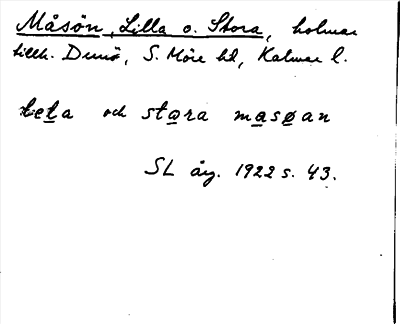 Måsön, Lilla o. Stora, holmar
tillh. Dunö, S. Möre hd, Kalmar l.
och stora masøan
SL årg. 1922 s. 43.